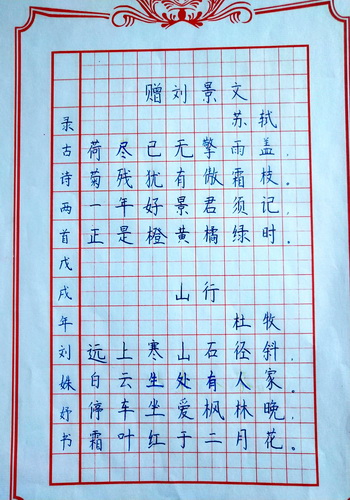 赠刘景文
苏轼
荷尽已无擎雨盖，
菊残犹有傲霜枝。
一年好景君须记，
正是橙黄橘绿时。
山行
杜牧
远上寒山石径斜，
白云生处有人家。
停车坐爱枫林晚，
霜叶红于二月花。
录古诗两首戊戌年刘姝妤书